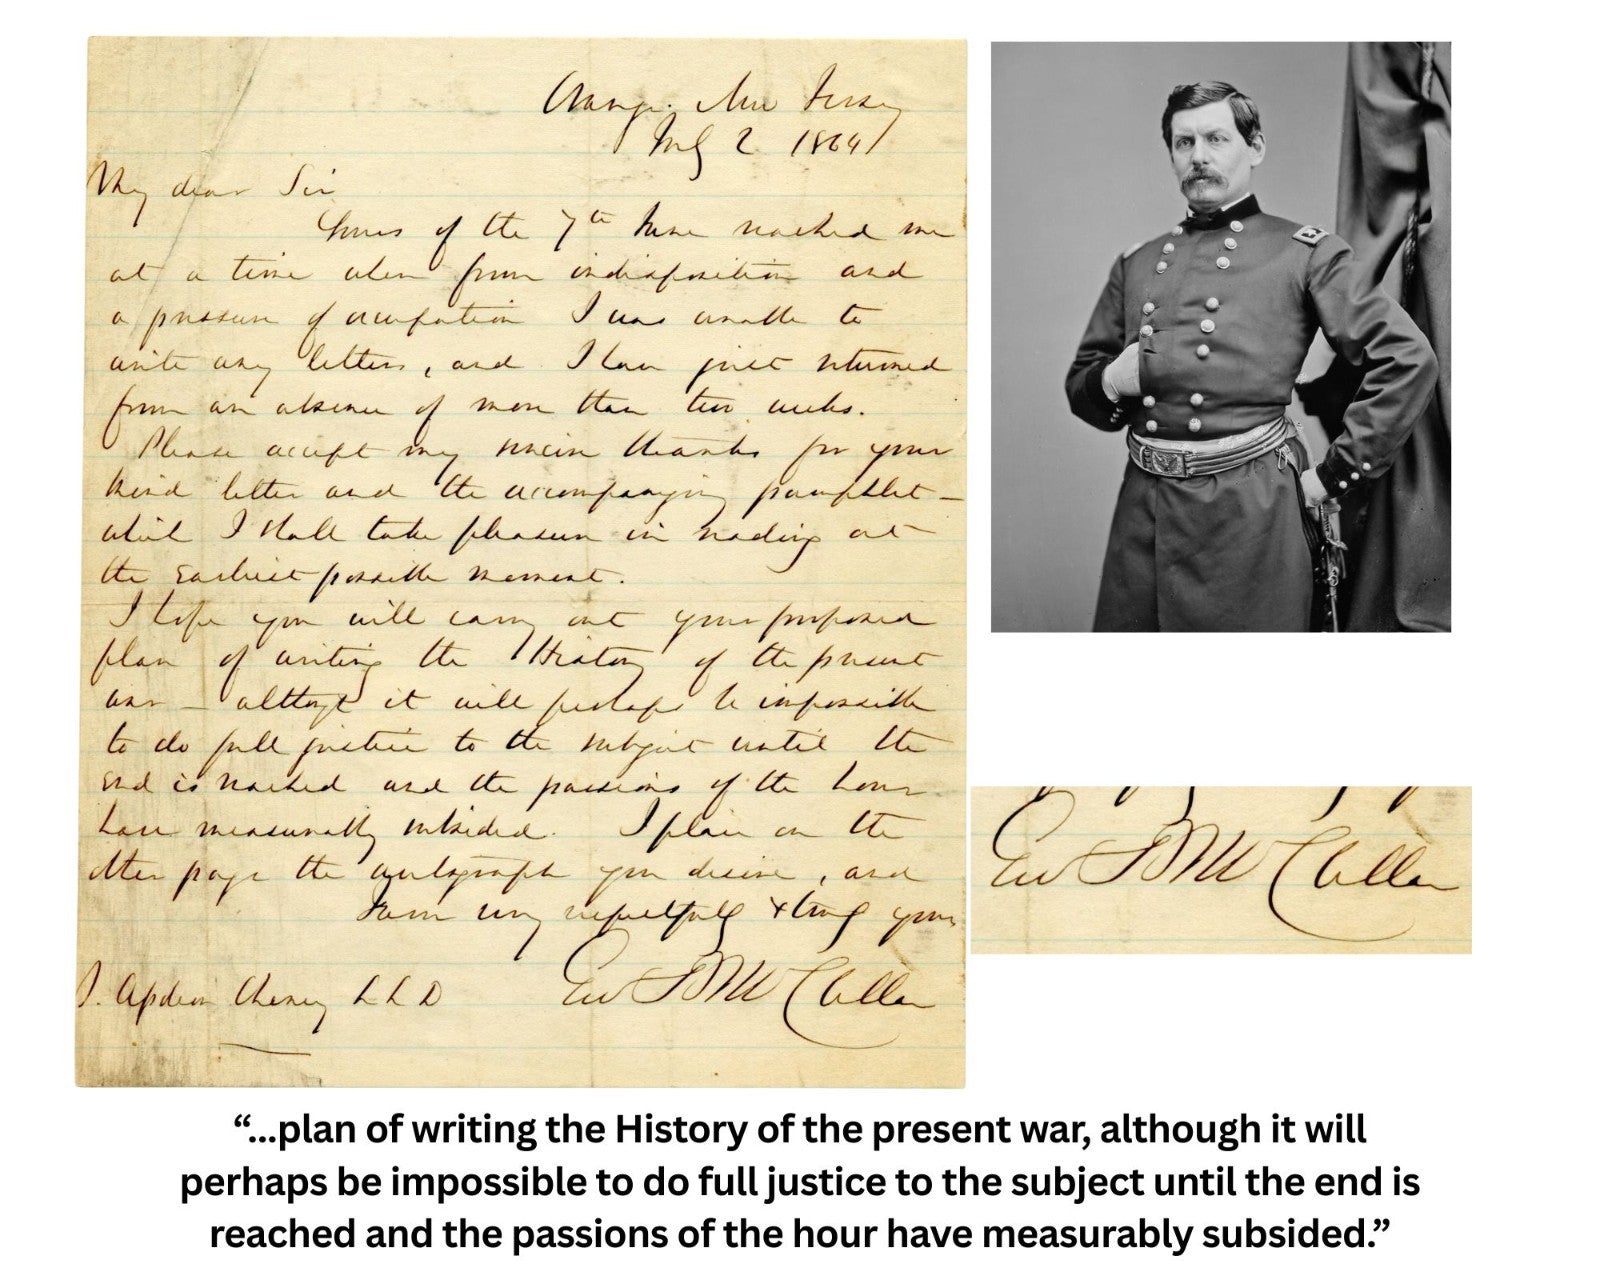 Orange, New Jersey
July 2 1864
My dear Sir
Yours of the 7th June reached me
at a time when from indisposition and
a pressure of occupation I was unable to
write any letters, and I have just returned
from an absence of more than two weeks.
Please accept my sincere thanks for your
kind letter and the accompanying pamphlet —
which I shall take pleasure in reading at
the earliest possible moment.
I hope you will carry out your proposed
plan of writing the History of the present
war — although it will perhaps be impossible
to do full justice to the subject until the
end is reached and the passions of the hour
have measurably subsided. I place on the
other page the autograph you desire, and
am very respectfully & truly yours
Geo B McClellan
J. Cheney L L D
Geo B McClellan
“...plan of writing the History of the present war, although it will
perhaps be impossible to do full justice to the subject until the end is
reached and the passions of the hour have measurably subsided.”